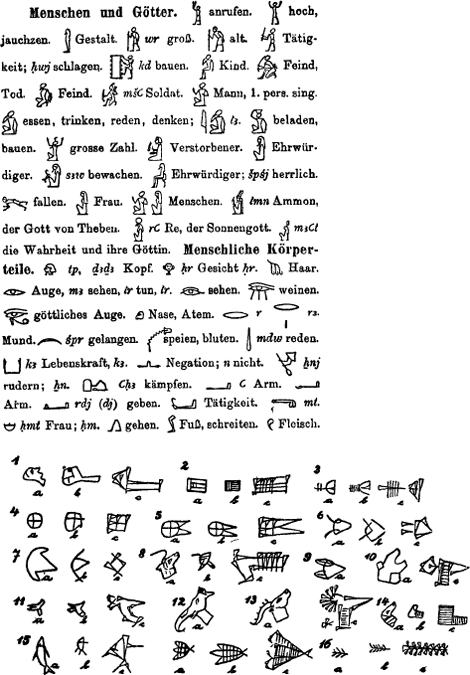 Menschen und Götter. anrufen. hoch,
jauchzen. Gestalt. wr groß. alt. Tätig-
keit; ḥwj schlagen. ḳd bauen. Kind. Feind,
Tod. Feind. mšꜥ Soldat. Mann, 1. pers. sing.
essen, trinken, reden, denken; beladen,
bauen. grosse Zahl. Verstorbener. Ehrwür-
diger. bewachen. Ehrwürdiger; špśj herrlich.
fallen. Frau. Menschen. Ammon,
der Gott von Theben. rꜥ Re, der Sonnengott. mꜣꜥt
die Wahrheit und ihre Göttin. Menschliche Körper-
teile. tp, ḏꜣḏꜣ Kopf. ḥr Gesicht ḥr. Haar.
Auge, mꜣ sehen, ir tun, ir. sehen. weinen.
göttliches Auge. Nase, Atem. r rꜣ.
Mund. śpr gelangen. speien, bluten. mdw reden.
kꜣ Lebenskraft, kꜣ. Negation; n nicht. ḫnj
rudern; ḫn. ꜥḥꜣ kämpfen. ꜥ Arm.
Arm. rdj (dj) geben. Tätigkeit. mt.
ḥmt Frau; ḥm. gehen. Fuß, schreiten. Fleisch.
1 a b c 2 a b c 3 a b c
4 a b c 5 a b c 6 a b c
7 a b c 8 a b c 9 a b 10 a c
11 a b c 12 a 13 a c 14 a b c
15 a b c a b c 16 a b c